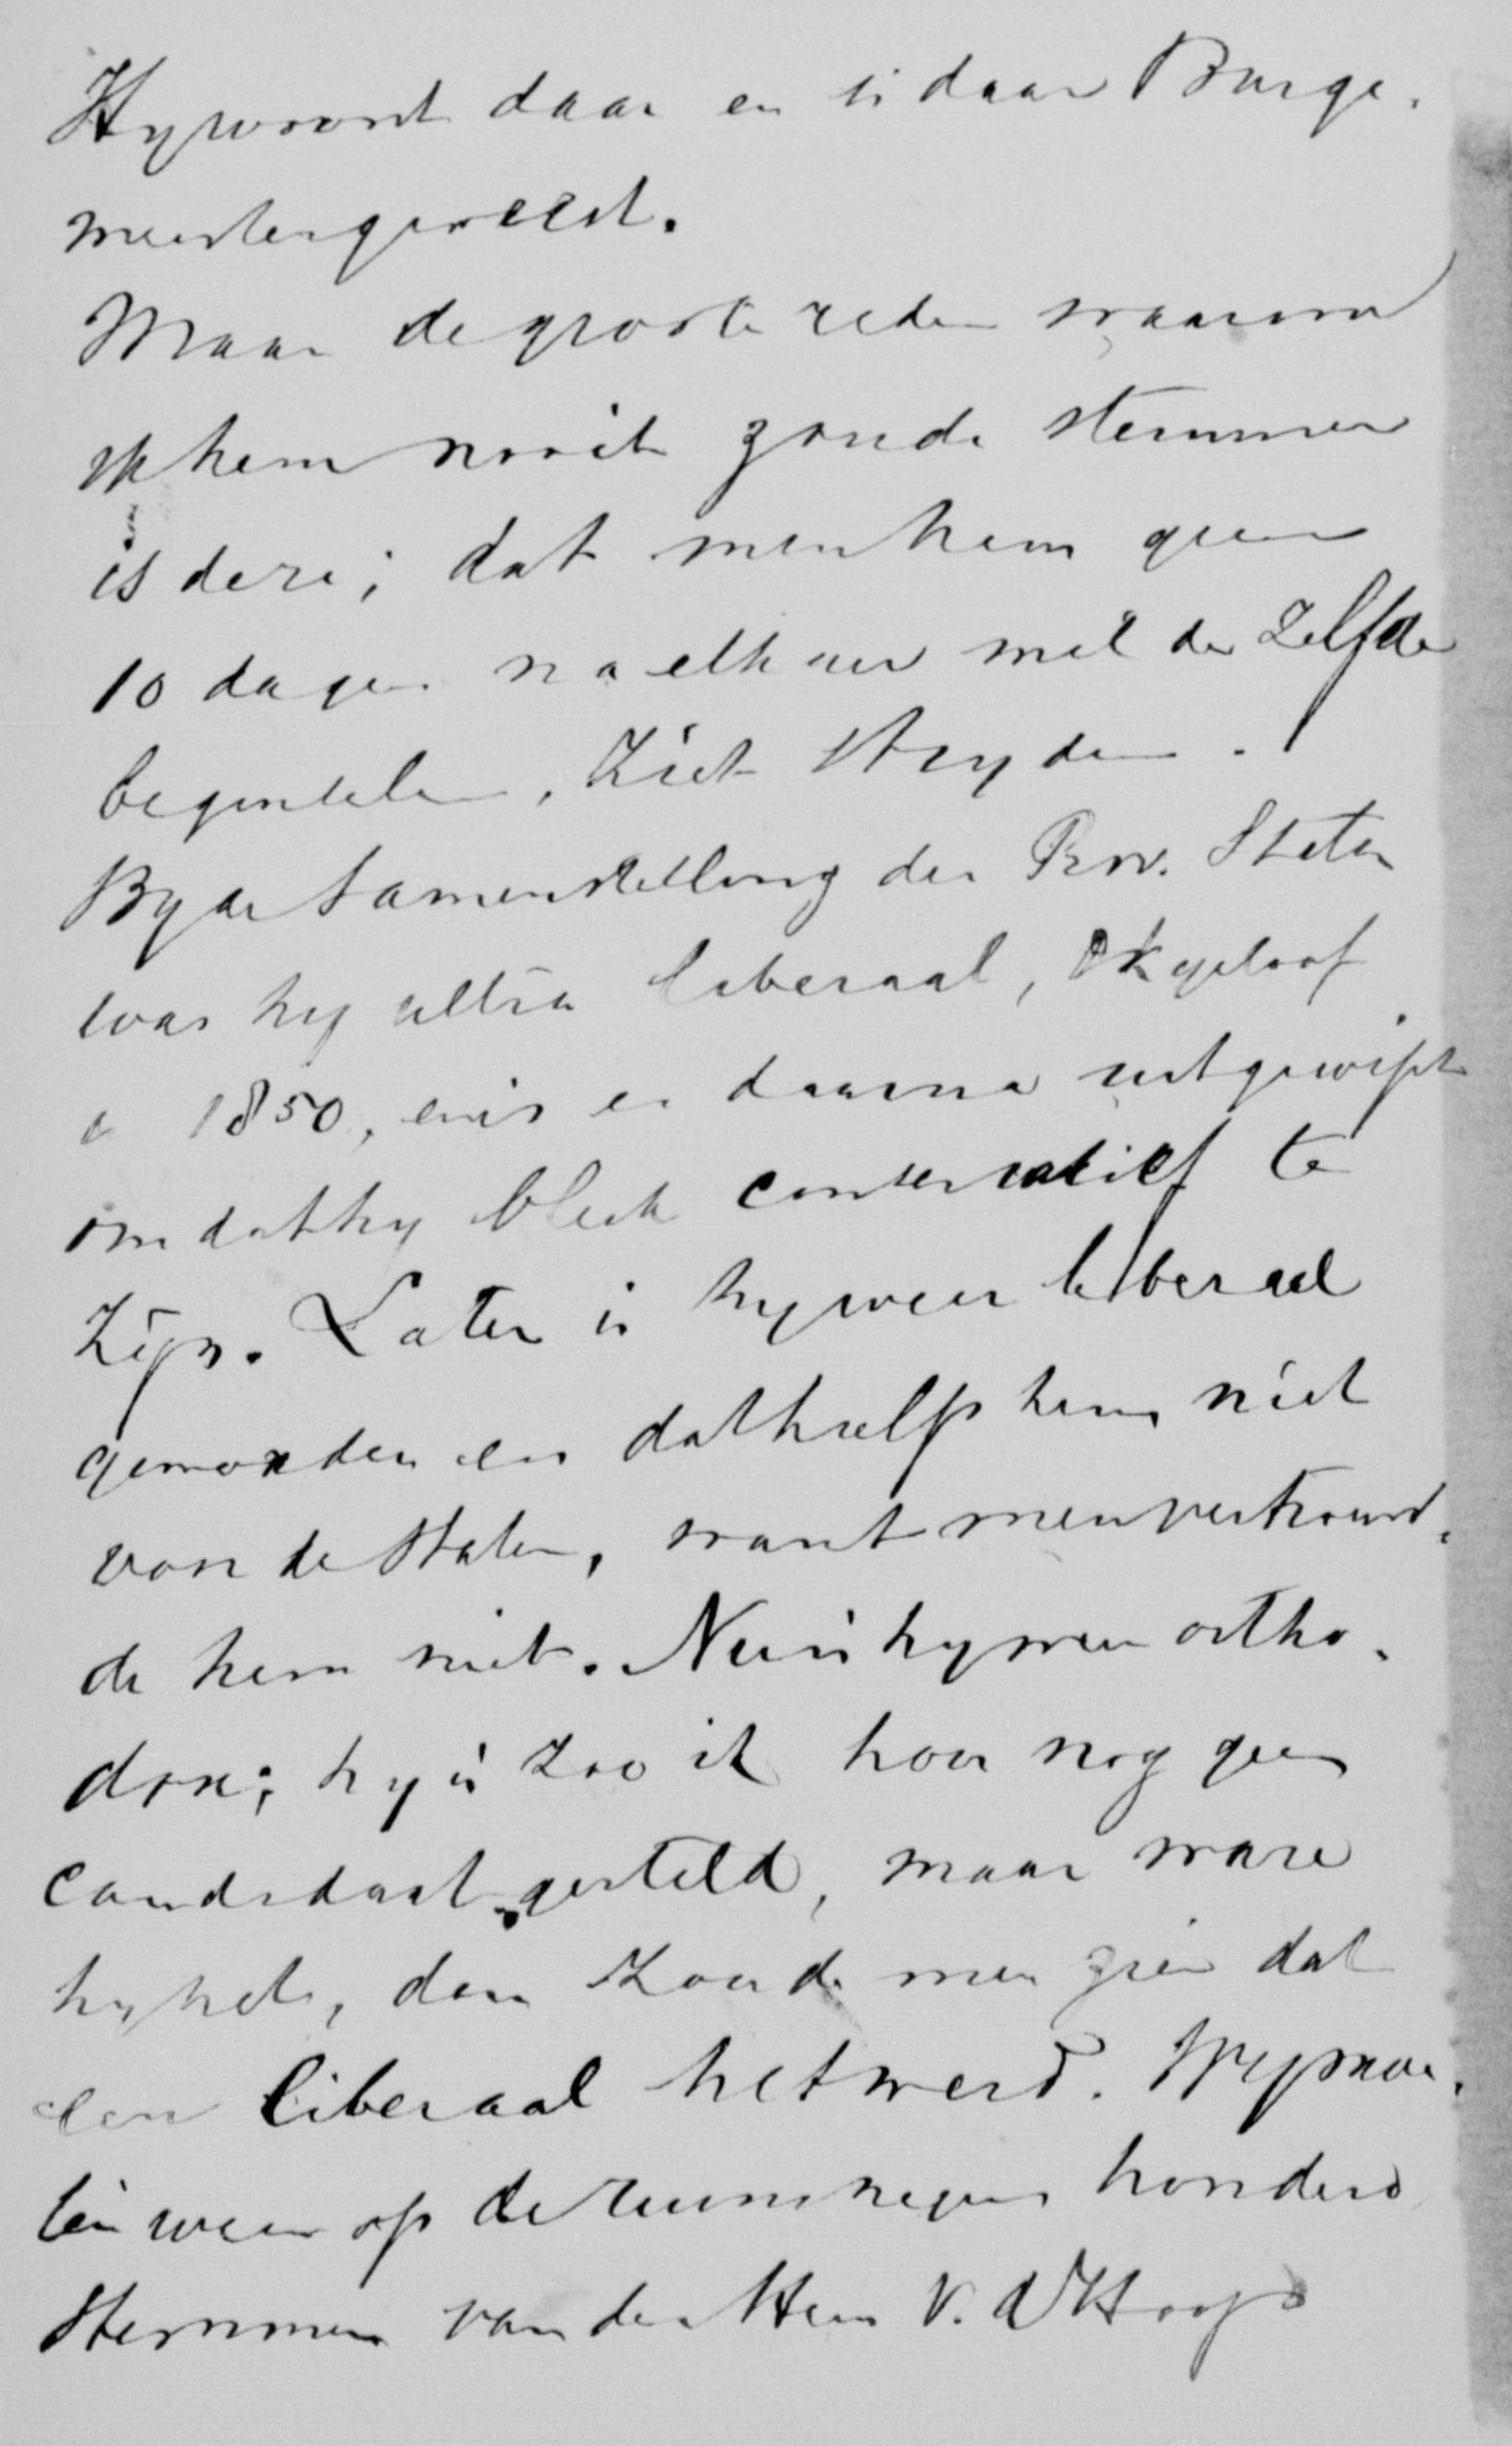 Hy woont daar en is daar Burge-
meester geweest.
Maar de groote reden waarom
ik hem nooit zoude stemmen
is deze; dat men hem geen
10 dagen na elkaar met de zelfde
beginselen, ziet stryden.
By de samenstelling der Prov. Staten
was hy ultra liberaal, ik geloof
in 1850, en is er daarna uitgewipt
omdat hy bleek conservatief te
zijn. Later is hy weer liberaal
geworden en dat hielp hem niet
voor de Staten, want men vertrouw-
de hem niet. Nu is hy weer ortho-
dox; hy is zoo ik hoor nog geen
candidaat gesteld, maar ware
hy het, dan zoude men zien dat
een liberaal het werd. Wy
weer op de ruim negen honderd
stemmen van den Heer V. d Hoop